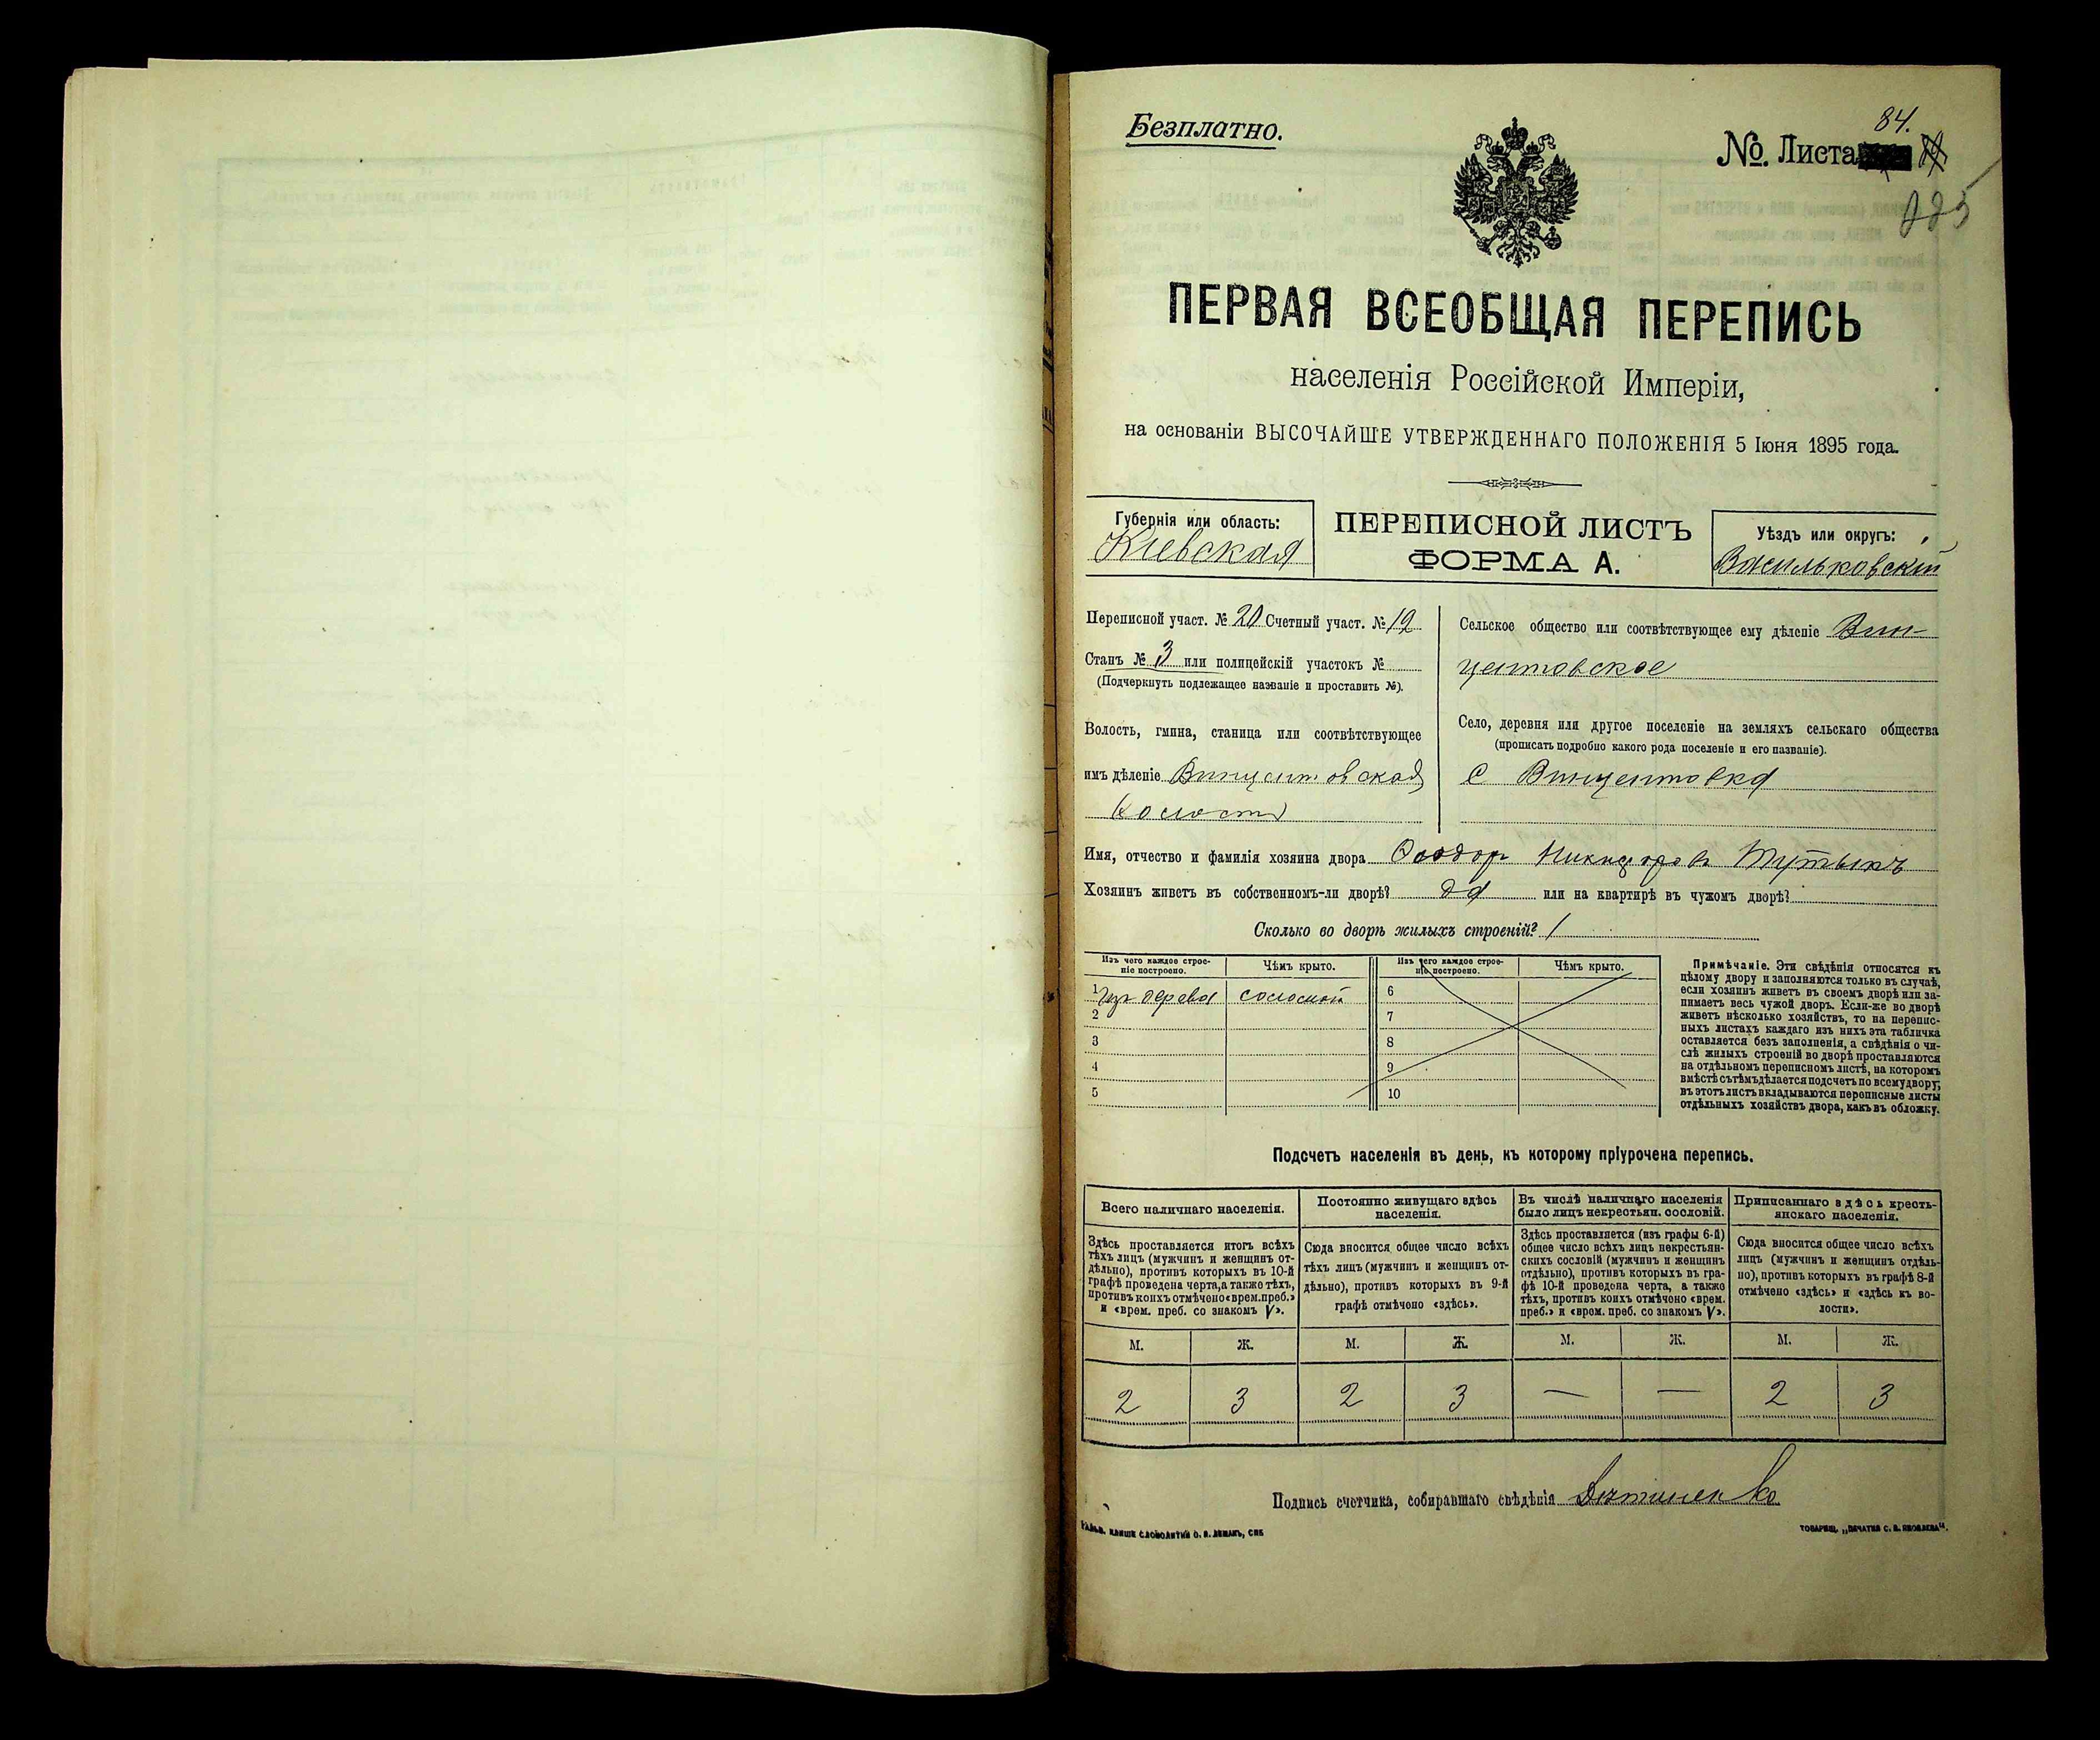 Безплатно.
84.
№. Листа
ПЕРВАЯ ВСЕОБЩАЯ ПЕРЕПИСЬ
населенія Россійской Имперіи,
на основаніи ВЫСОЧАЙШЕ УТВЕРЖДЕННАГО ПОЛОЖЕНІЯ 5 Іюня 1895 года.
Губернія или область:
Кіевская
ПЕРЕПИСНОЙ ЛИСТЪ
ФОРМА А.
Уѣздъ или округъ:
Васильковскій
Переписной участ. № 20 Счетный участ. № 12
Станъ № 3 или полицейскій участокъ №
(Подчеркнуть подлежащее названіе и проставить №).
Волость, гмина, станица или соотвѣтствующее
имъ дѣленіе Винцентовская
волость
Сельское общество или соотвѣтствующее ему дѣленіе Вин-
центовское
Село, деревня или другое поселеніе на земляхъ сельскаго общества
(прописать подробно какого рода поселеніе и его названіе).
с Винцентовка
Имя, отчество и фамилія хозяина двора Феодор Никифоров
Хозяинъ живетъ въ собственномъ-ли дворѣ? да или на квартирѣ въ чужомъ дворѣ?
Сколько во дворѣ жилыхъ строеній? 1
Изъ чего каждое строе-
ніе построено.
Чѣмъ крыто.
Изъ чего каждое строе-
ніе построено.
Чѣмъ крыто.
1 Изъ дерева соломой
2
3
4
5
6
7
8
9
10
Примѣчаніе. Эти свѣдѣнія относятся къ
цѣлому двору и заполняются только въ случаѣ,
если хозяинъ живетъ въ своемъ дворѣ или за-
нимаетъ весь чужой дворъ. Если-же во дворѣ
живетъ нѣсколько хозяйствъ, то на перепис-
ныхъ листахъ каждаго изъ нихъ эта табличка
оставляется безъ заполненія, а свѣдѣнія о чи-
слѣ жилыхъ строеній во дворѣ проставляются
на отдѣльномъ переписномъ листѣ, на которомъ
вмѣстѣ съ тѣмъ дѣлается подсчетъ по всему двору;
въ этотъ листъ вкладываются переписные листы
отдѣльныхъ хозяйствъ двора, какъ въ обложку.
Подсчетъ населенія въ день, къ которому пріурочена перепись.
Всего наличнаго населенія.
Здѣсь проставляется итогъ всѣхъ
тѣхъ лицъ (мужчинъ и женщинъ от-
дѣльно), противъ которыхъ въ 10-й
графѣ проведена черта, а также тѣхъ,
противъ коихъ отмѣчено «врем. преб.»
и «врем. преб. со знакомъ V».
Постоянно живущаго здѣсь
населенія.
Сюда вносится общее число всѣхъ
тѣхъ лицъ (мужчинъ и женщинъ от-
дѣльно), противъ которыхъ въ 9-й
графѣ отмѣчено «здѣсь».
Въ числѣ наличнаго населенія
было лицъ некрестьян. сословій.
Здѣсь проставляется (изъ графы 6-й)
общее число всѣхъ лицъ некрестьян-
скихъ сословій (мужчинъ и женщинъ
отдѣльно), противъ которыхъ въ гра-
фѣ 10-й проведена черта, а также
тѣхъ, противъ коихъ отмѣчено «врем.
преб.» и «врем. преб. со знакомъ V».
Приписаннаго здѣсь кресть-
янскаго населенія.
Сюда вносится общее число всѣхъ
лицъ (мужчинъ и женщинъ отдѣль-
но), противъ которыхъ въ графѣ 8-й
отмѣчено «здѣсь» и «здѣсь къ во-
лости».
М. Ж. М. Ж. М. Ж. М. Ж.
2 3 2 3 — — 2 3
Подпись счетчика, собиравшаго свѣдѣнія
ТОВАРИЩ. „ПЕЧАТНЯ С. П. ЯКОВЛЕВА“.